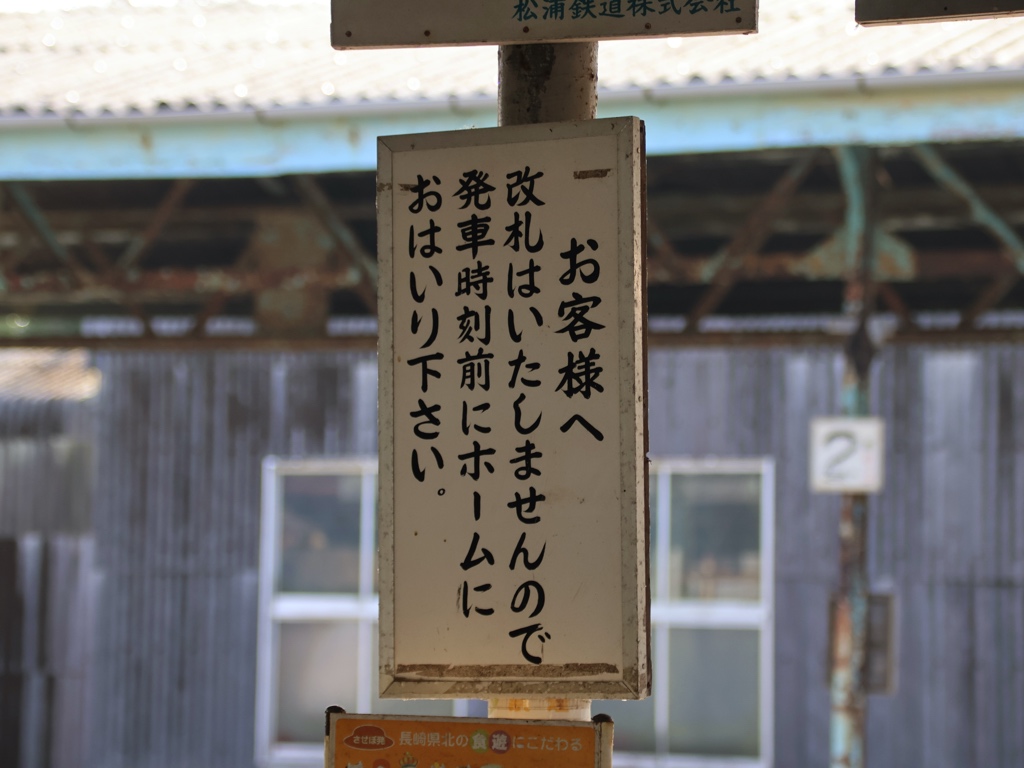 松浦鉄道株式会社
お客様へ
改札はいたしませんので
発車時刻前にホームに
おはいり下さい。
2
させぼ発
長崎県北の食遊にこだわる